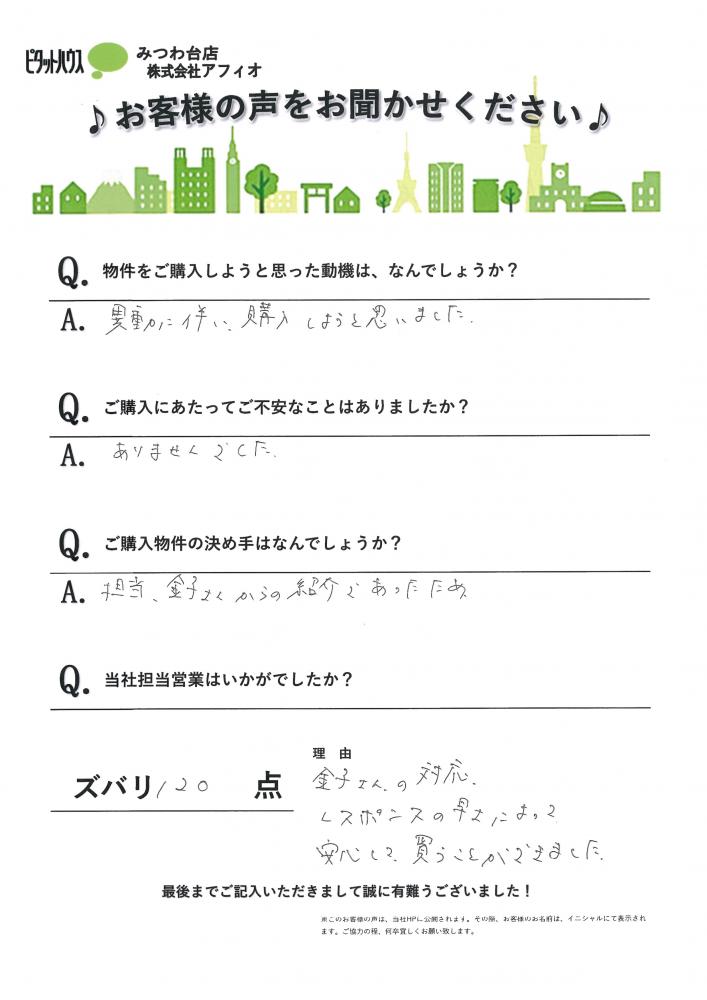 ピタットハウス みつわ台店
株式会社アフィオ
♪お客様の声をお聞かせください♪
Q. 物件をご購入しようと思った動機は、なんでしょうか？
A. 異動に伴い、購入しようと思いました。
Q. ご購入にあたってご不安なことはありましたか？
A. ありませんでした。
Q. ご購入物件の決め手はなんでしょうか？
A. 担当、金子さんからの紹介であったため
Q. 当社担当営業はいかがでしたか？
理 由
ズバリ 120 点
金子さんの対応、
レスポンスの早さによって
安心して買うことができました。
最後までご記入いただきまして誠に有難うございました！
※このお客様の声は、当社HPに公開されます。その際、お客様のお名前は、イニシャルにて表示され
ます。ご協力の程、何卒宜しくお願い致します。